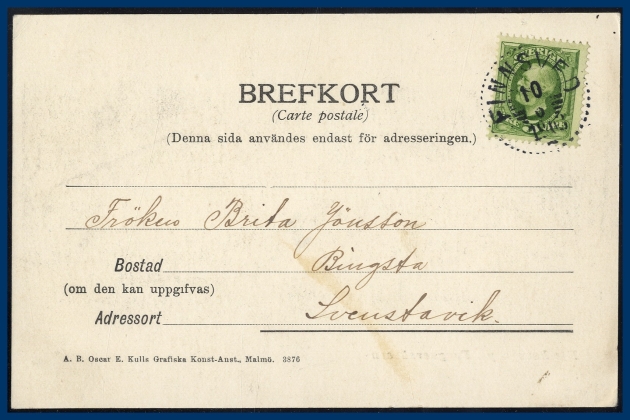 SVERIGE
FINNSVED
10
BREFKORT
(Carte postale)
(Denna sida användes endast för adresseringen.)
Fröken Brita Jönsson
Bostad Bingsta
(om den kan uppgifvas)
Adressort Svenstavik.
A. B. Oscar E. Kulls Grafiska Konst-Anst., Malmö. 3876